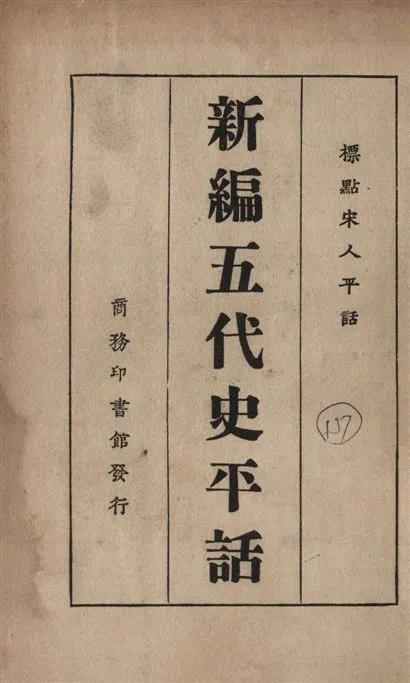 標點宋人平話
新編五代史平話
商務印書館發行